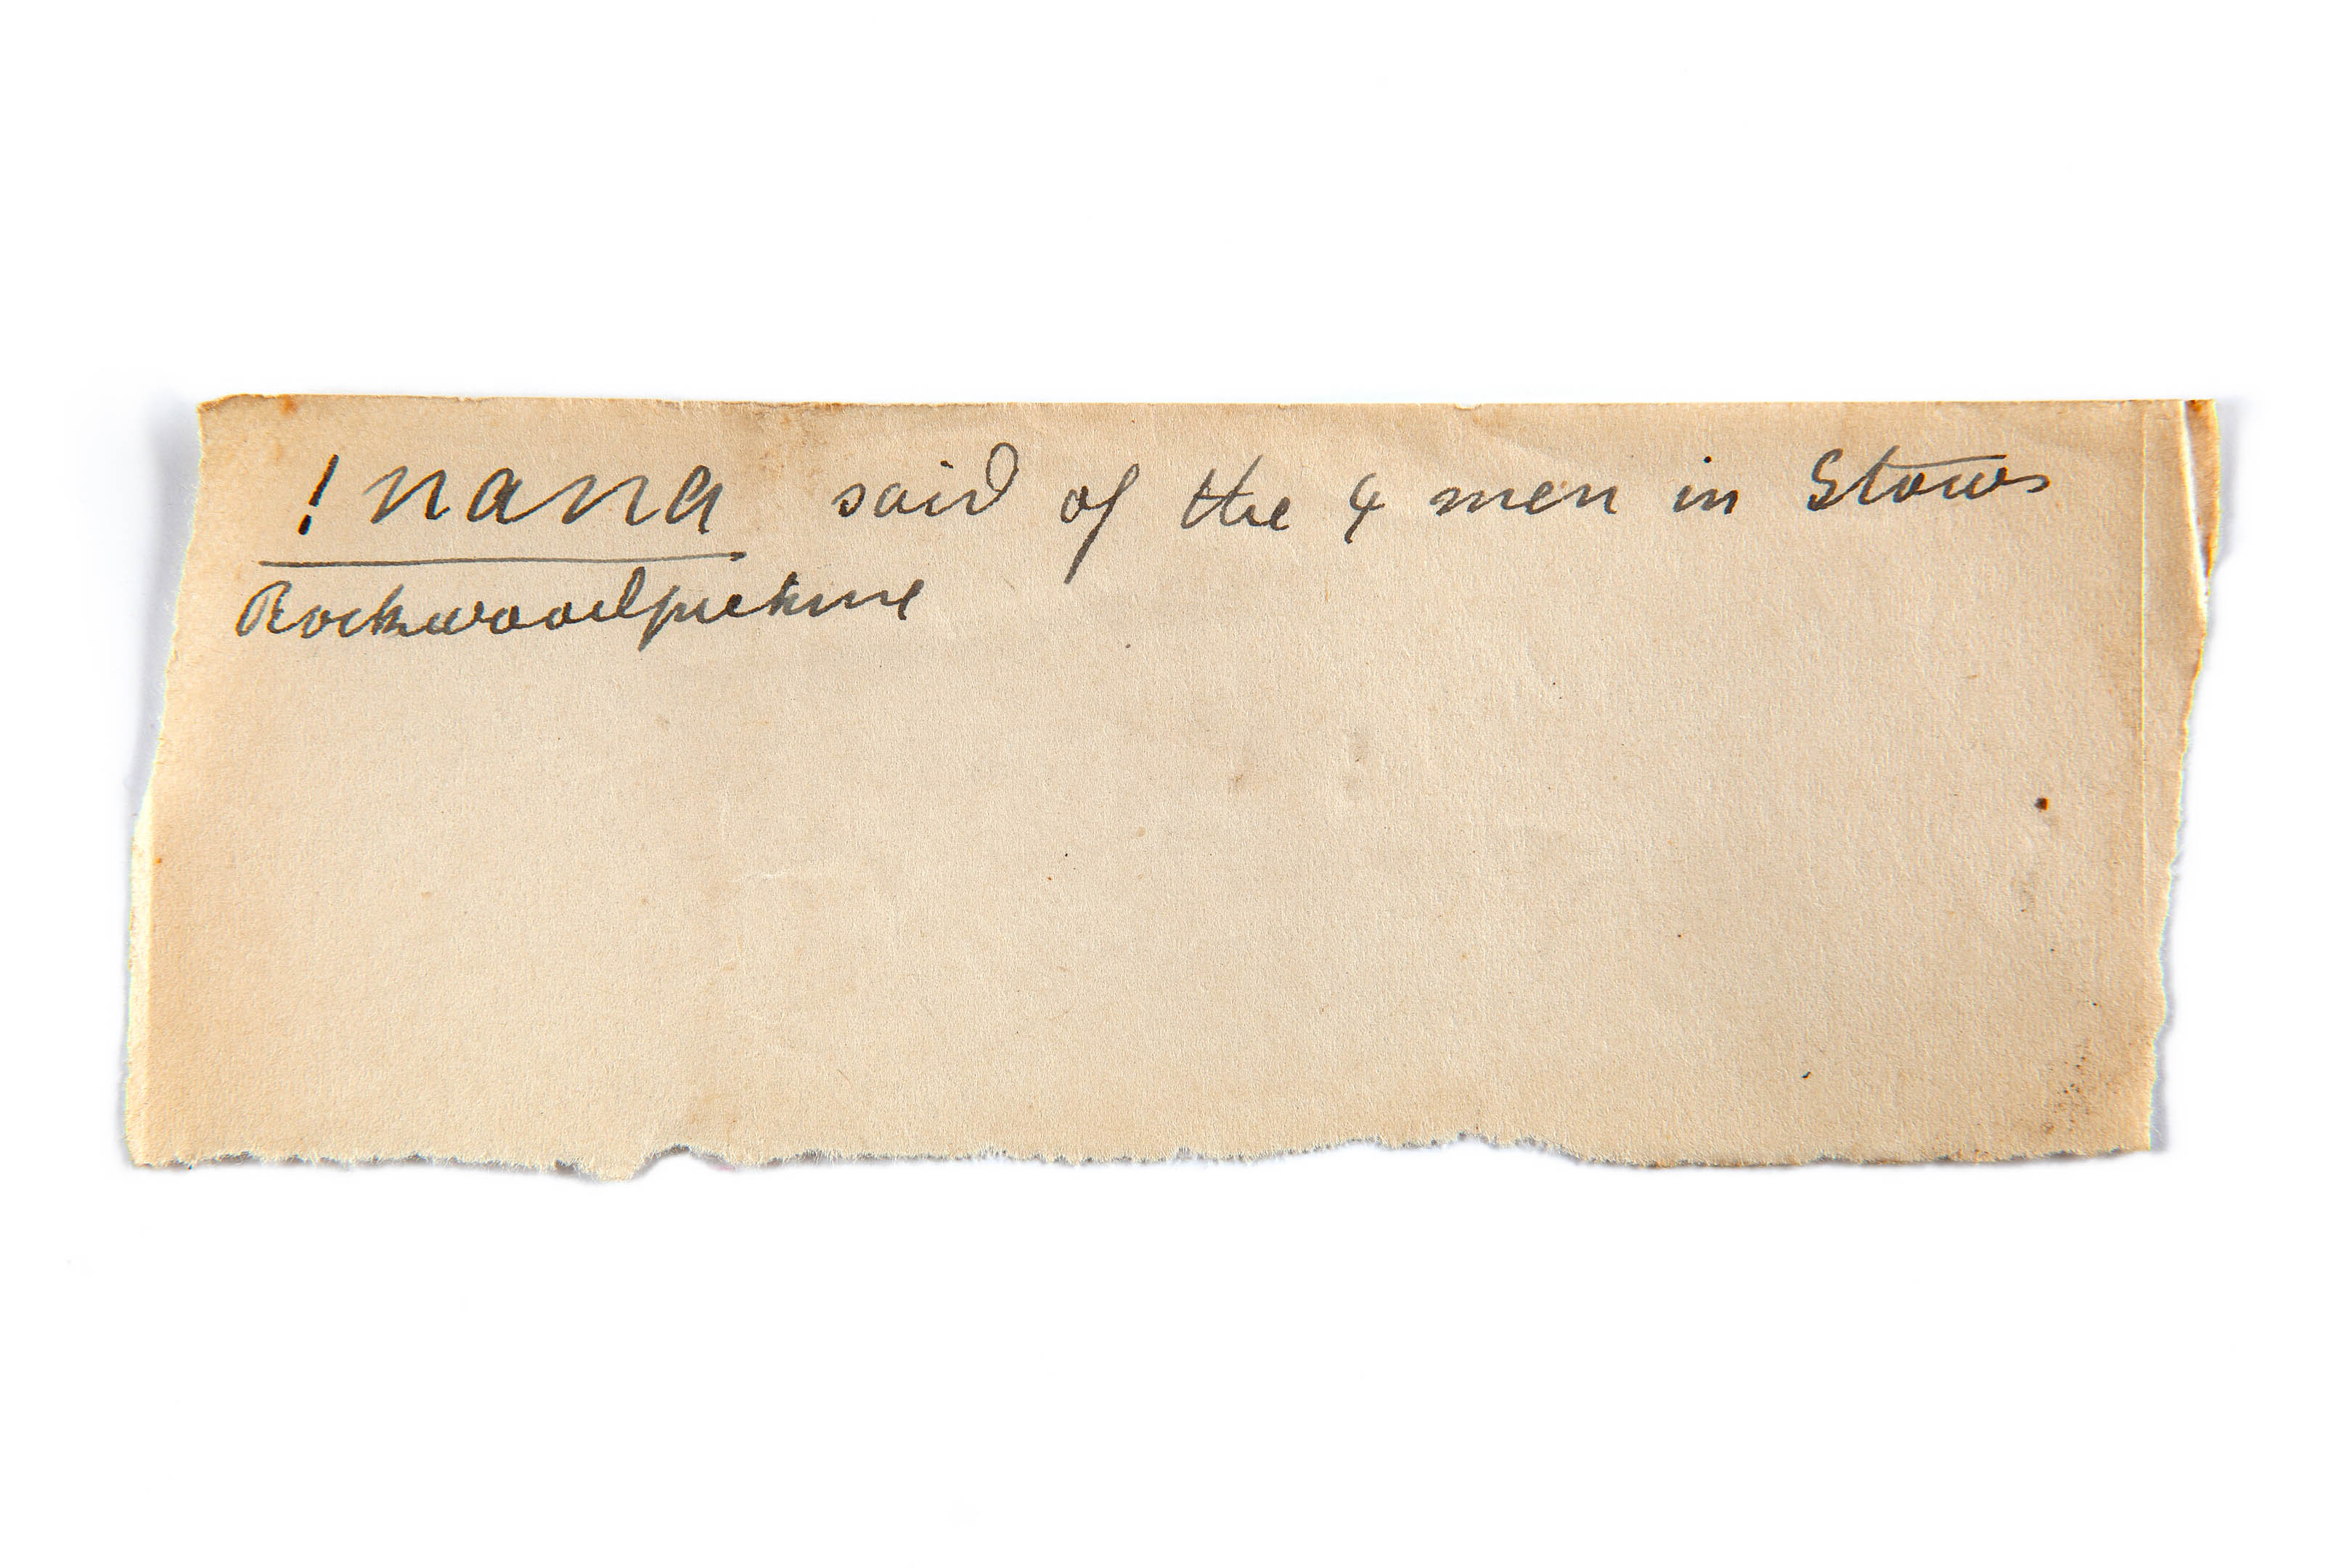 ! nana said of the 4 men in Stows
Rockwood picture